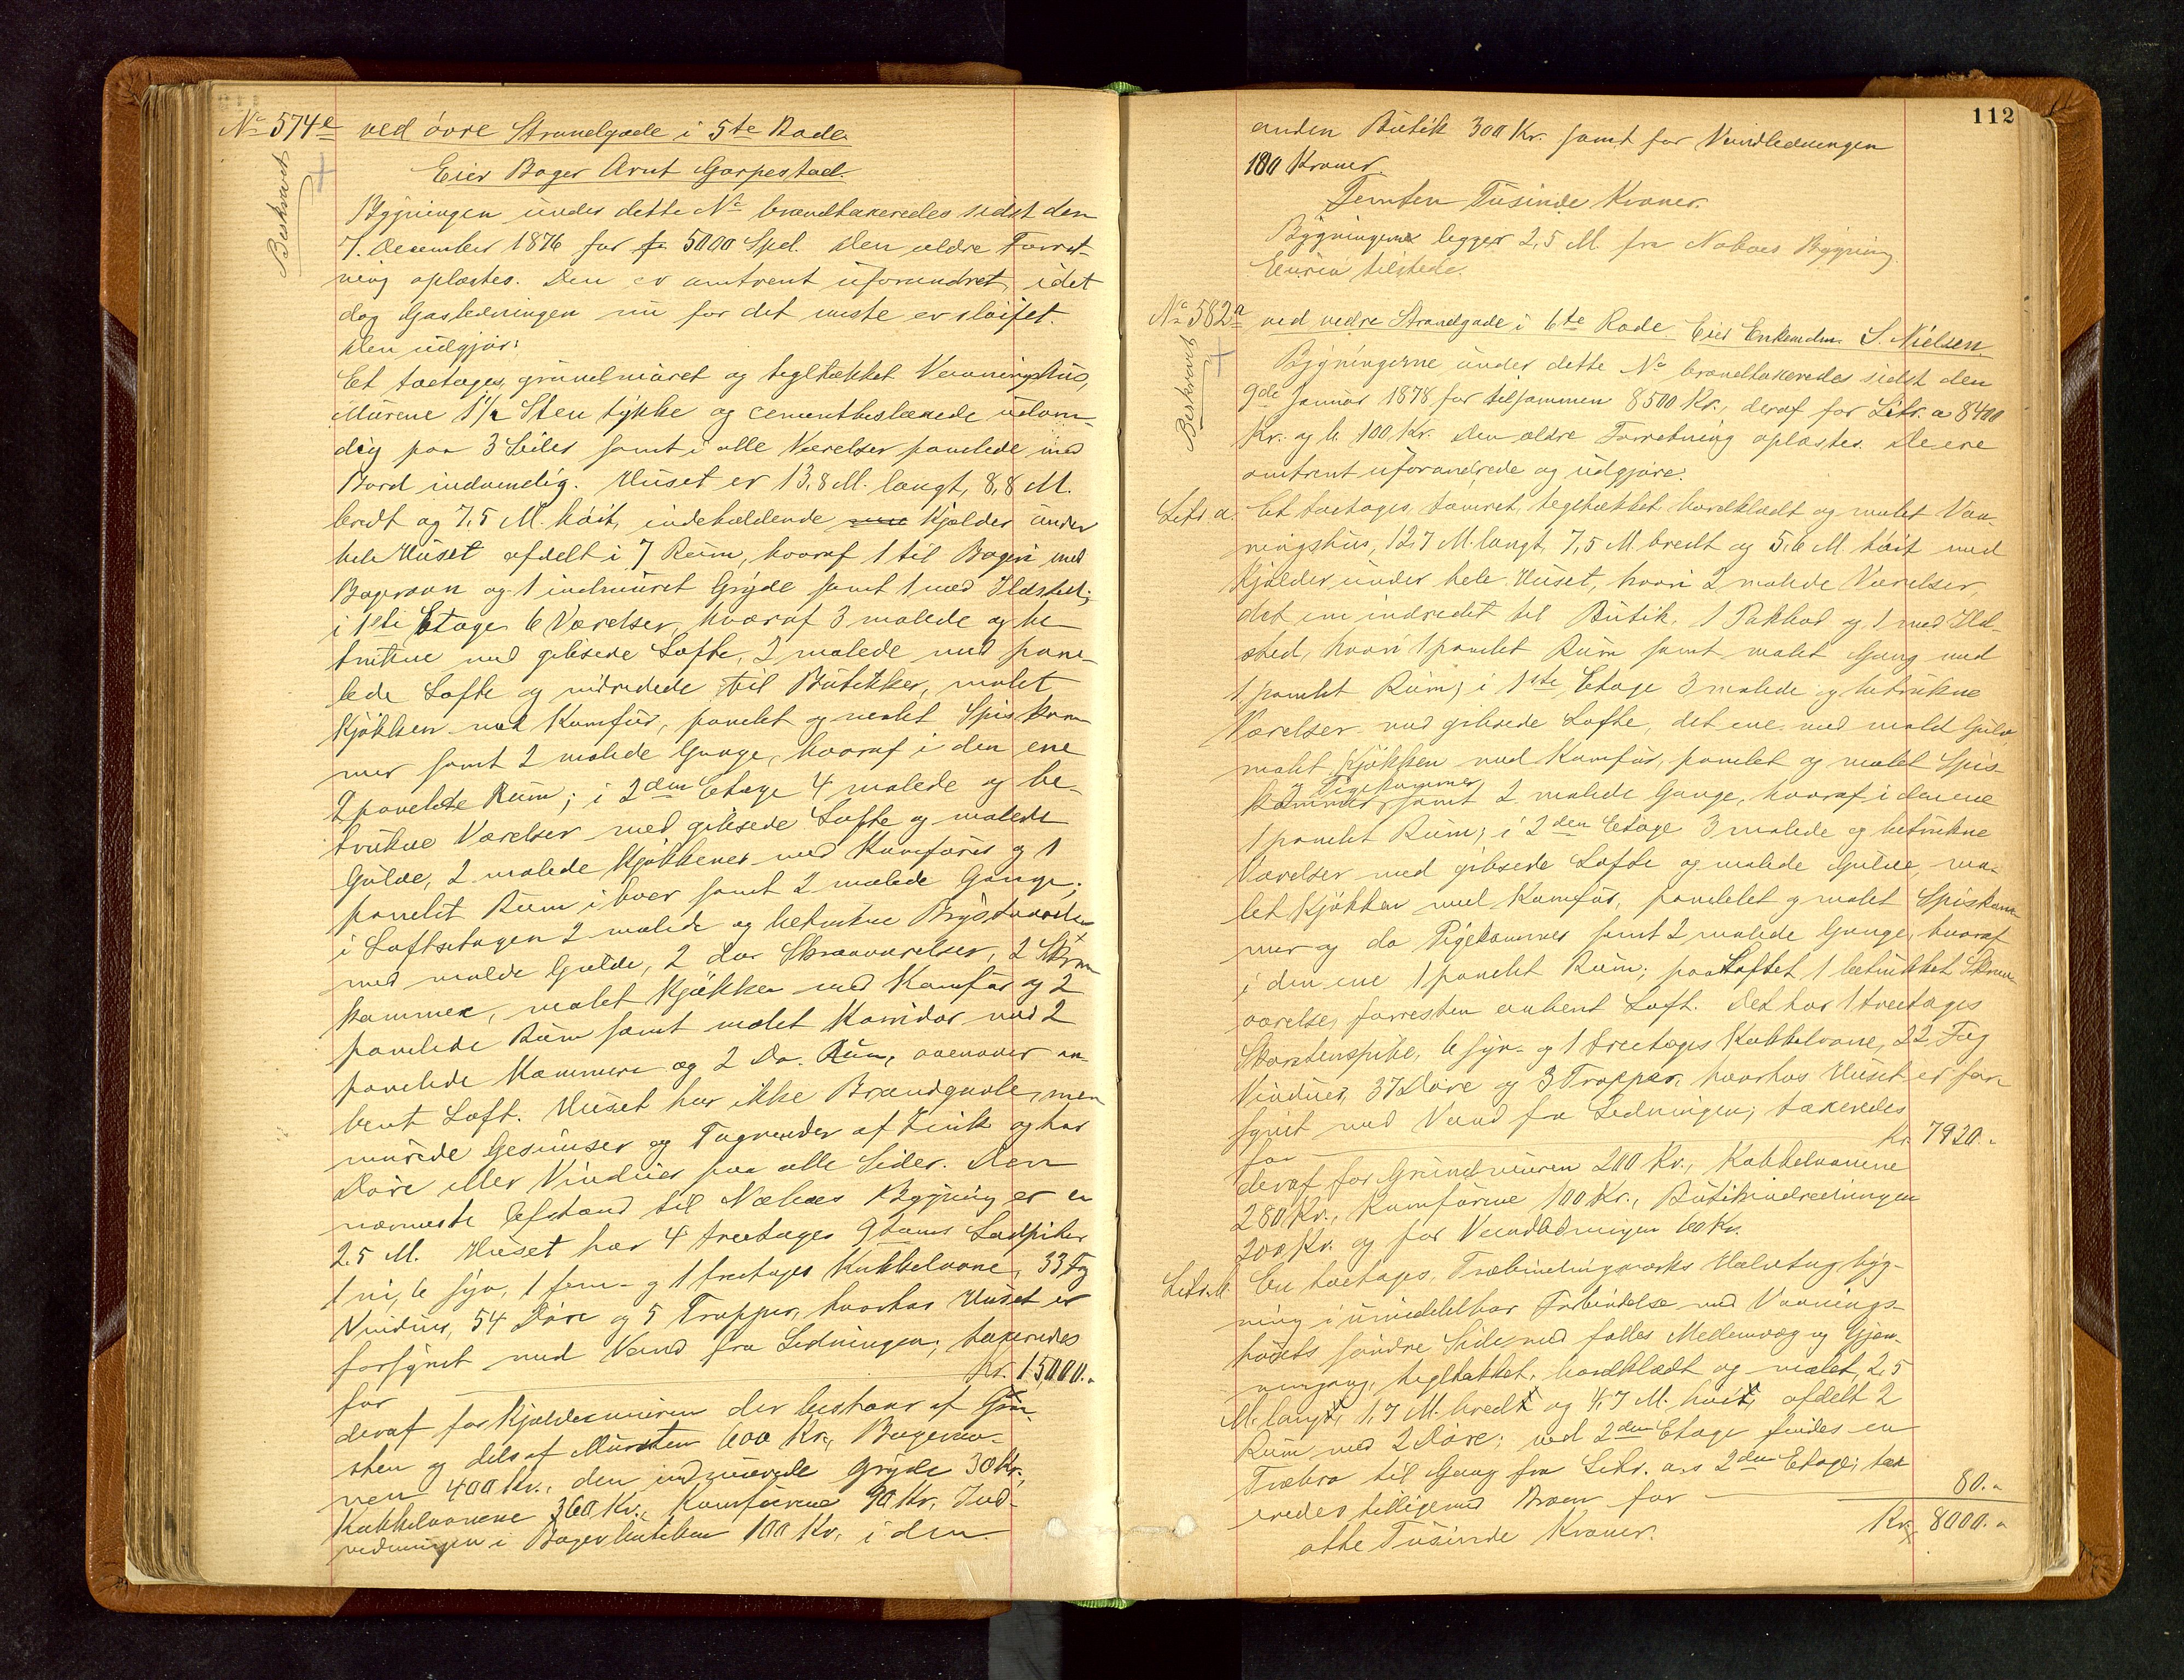 No 574e ved övre Strandgade i 5te Rode.
Beskrevet
Eier Bager Arnt Garpestad.
Bygningen under dette No brandtaxeredes sidst den
7. December 1876 for fo 5000 Spd. Den ældre Forret-
ning oplæstes. Den er omtrent uforandret, idet
dog Gasledningen nu for det meste er slöifet.
Den udgjör:
Et toetages, grundmuret og tegltækket Vaaningshus,
Murene 1½ Sten tykke og cementbeslaaede udven-
dig paa 3 Sider samt i alle Værelser panelede med
Bord indvendig. Huset er 13,8 M. langt, 8,8 M.
bredt og 7,5 M. höit, indeholdende Kjælder under
hele Huset afdelt i 7 Rum, hvoraf 1 til Bageri med
Bagerovn og 1 indmuret Gryde samt 1 med Ildsted;
i 1ste Etage 6 Værelser, hvoraf 3 malede og be-
trukne med gibsede Lofte, 2 malede med pane-
lede Lofte og indredede til Butikker, malet
Kjökken med Komfur, panelet og malet Spiskam-
mer samt 2 malede Gange, hvoraf i den ene
2 panelede Rum; i 2den Etage 4 malede og be-
trukne Værelser med gibsede Lofte og malede
Gulve, 2 malede Kjökkener med Komfurer og 1
panelet Rum i hver samt 2 malede Gange;
i Loftsetagen 2 malede og betrukne Brystværelser
med malede Gulve, 2 do. Skraaværelser, 2
kammer, malet Kjökken med Komfur og 2
panelede Rum samt malet Korridor med 2
panelede Kammere og 2 Do. Rum, ovenover aa-
bent Loft. Huset har ikke Brandgavle, men
murede Gesimser og Tagrender af Zink og har
Döre eller Vinduer paa alle Sider. Den
nærmeste Afstand til Naboes Bygning er en
2,5 M. Huset har 4 treetages 9toms Ladpiber
1 ni, 6 syv, 1 fem- og 1 treetages Kakkelovne, 33 Fag
Vinduer, 54 Döre og 5 Trapper, hvorhos Huset er
forsynet med Vand fra Ledningen; taxeredes
for Kr. 15000.-
deraf for Kjældermuren der bestaar af Graa-
sten og dels af Mursten 600 Kr., Bagerov-
nen 400 Kr., den indmurede Gryde 30 Kr.,
Kakkelovnene 360 Kr., Komfurene 90 Kr., Ind-
redningen i Bagerbutiken 100 Kr., i den
112
anden Butik 300 Kr. samt for Vandledningen
180 Kroner.
Femten Tusinde Kroner.
Bygningerne ligger 2,5 M. fra Naboes Bygning.
Eieren tilstede.
No 582a ved nedre Strandgade i 6te Rode. Eier Enkemdm. S. Nielsen.
Beskrevet
Bygningerne under dette No brandtaxeredes sidst den
9de Januar 1878 for tilsammen 8500 Kr., deraf for Litr. a 8400
Kr. og b. 100 Kr. Den ældre Forretning oplæstes. De ere
omtrent uforandrede og udgjöre:
Litr. a. Et toetages, tömret, tegltækket, bordklædt og malet Vaa-
ningshus, 12,7 M. langt, 7,5 M. bredt og 5,6 M. höit med
Kjælder under hele Huset, hvori 2 malede Værelser,
det ene indredet til Butik, 1 Pakbod og 1 med Ild-
sted, hvori 1 panelet Rum samt malet Gang med
1 panelet Rum; i 1ste Etage 3 malede og betrukne
Værelser med gibsede Lofte, det ene med malet Gulv,
malet Kjökken med Komfur, panelet og malet Spis-
2 Pigekammer
kammer samt 2 malede Gange, hvoraf i den ene
1 panelet Rum; i 2den Etage 3 malede og betrukne
Værelser med gibsede Lofte og malede Gulve, ma-
let Kjökken med Komfur, panelet og malet Spiskam-
mer og do Pigekammer samt 2 malede Gange, hvoraf
i den ene 1 panelet Rum; paa Loftet 1 betrukket Skraa-
værelse, forresten aabent Loft. Det har 1 treetages
Skorstenspibe, 6 syv- og 1 treetages Kakkelovne, 22 Fag
Vinduer, 37 Döre og 3 Trapper, hvorhos Huset er for-
synet med Vand fra Ledningen; taxeredes
for Kr. 7920.-
deraf for Grundmuren 200 Kr., Kakkelovnene
280 Kr., Komfurene 100 Kr., Butikindredningen
200 Kr. og for Vandledningen 60 Kr.
Litr. b. En toetages, Træbindingsværks Halvtagbyg-
ning i umiddelbar Forbindelse med Vaanings-
husets söndre Side med fælles Mellemvæg og Gjen-
nemgang, tegltækket, bordklædt og malet, 2,5
M. lang, 1,7 M. bred og 4,7 M. höi, afdelt 2
Rum med 2 Döre; ved 2den Etage findes en
Træbro til Gang fra Litr. a.s 2den Etage; tax-
eredes tilligemed Broen for 80.-
Kr. 8000.-
otte Tusinde Kroner.